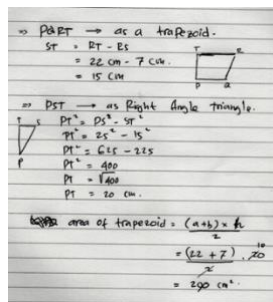 => PQRT → as a trapezoid.
ST = RT - RS
= 22 cm - 7 cm.
= 15 cm
T R
P Q
=> PST → as Right Angle triangle.
T S
P
PT² = PS² - ST²
PT² = 25² - 15²
PT² = 625 - 225
PT² = 400
PT = √400
PT = 20 cm.
area of trapezoid = (a+b) × h
2
= (22 + 7) . 20 10
2
= 290 cm².